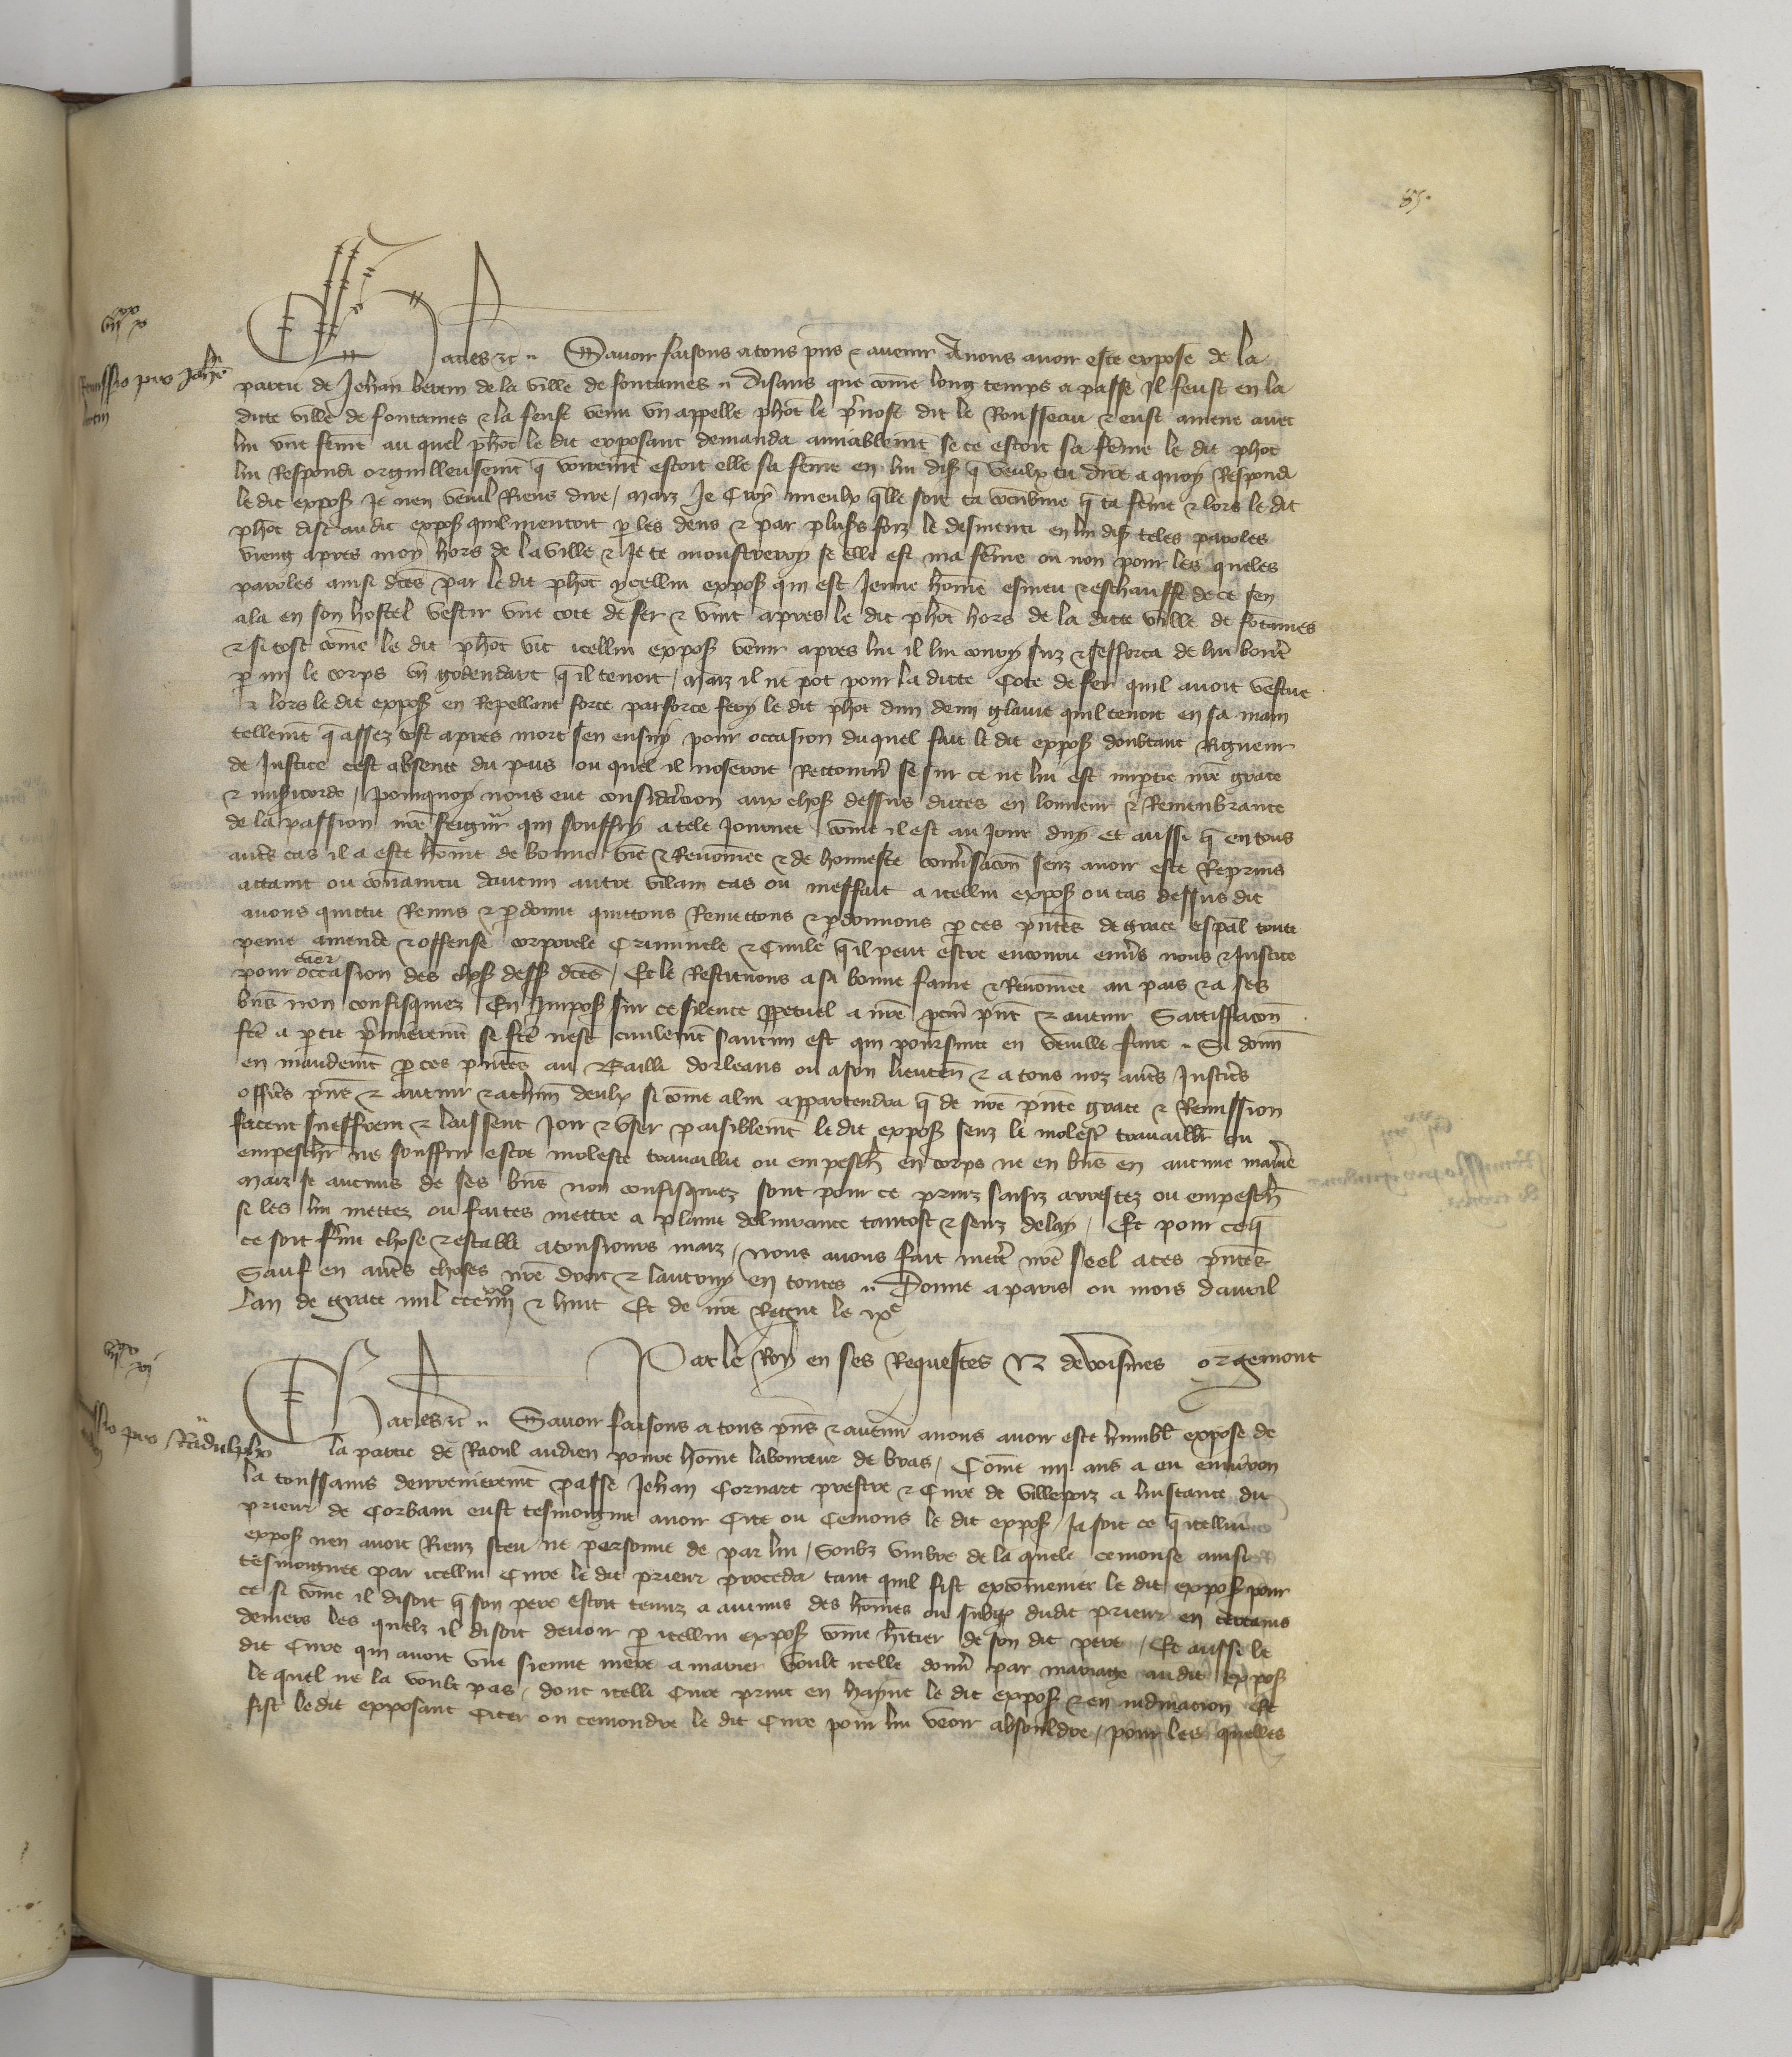 85.
Charles etc. Savoir faisons a tous pns et avenir Avons avoir este expose de la
Remissio pro Johe
partie de Jehan bertin de la ville de fontaines disans que come long temps a passe Il feust en la
ditte ville de fontaines et la feust venu un appelle phot le pnost dit le Rousseau et eust amene avec
lui une feme au quel phot le dit exposant demanda amiablemt se ce estoit sa feme le dit phot
lui Respondi orguilleusemt q voiremt estoit elle sa feme en lui dis q veulx tu dire a quoy Respondi
le dit expos Je nen veuil Riens dire / maiz Je Croy mieulx qlle soit ta concubine q ta feme et lors le dit
phot dist au dit expos quil mentoit p les dens et par pluss foiz le desmenti en lui dis teles paroles
vieng apres moy hors de la ville et Je te monstreroy se elle est ma feme ou non pour les queles
paroles ainsi dces par le dit phot ycellui expos qui est Jeune home esmeu et eschauffe de ce sen
ala en son hostel vestir une cote de fer et vint apres le dit phot hors de la ditte ville de fotaines
et si tost come le dit phot vit icellui expos venir apres lui il lui couru suz et sefforca de lui bouter
p mi le corps un godendart q il tenoit / maiz il ne pot pour la ditte Cote de fer quil avoit vestue
et lors le dit expos en Repellant force par force feri le dit phot dun demi glaive quil tenoit en sa main
tellemt q assez tost apres mort sen ensuy pour occasion du quel fait le dit expos doubtant Rigueur
de Justice cest absente du pais ou quel il noseroit Rettourn se sur ce ne lui est impartie nre grace
et misicorde / pourquoy nous eue consideracion aux chos dessus dittes en lonneur et Remenbrance
de la passion nre seigneur qui souffry a tele Journee come il est au Jour duy et aussi q en tous
autes cas il a este home de bonne vie et Renomee et de honneste convsacon senz avoir este Reprins
attaint ou convaincu daucun autre vilain cas ou meffait a icellui expos ou cas dessus dit
avons quictie Remis et pdonne quittons Remettons et pdonnons p ces pntes de grace espal toute
peine amende et offense corporele Criminele et Civile q il peut estre encouru envs nous et Justice
pour occasion des chos dess dces / Et le Restituons a sa bonne fame et Renomee au pais et a ses
bns non confisquez En Impos sur ce silence ppetuel a nre pcur pnt et avenir Sattisfacon
fce a ptie pmieremt se fce nest civilemt saucun est qui poursuite en veuille faire Si donn
en mandemt p ces pntes au Bailli dorleans ou a son lieuten et a tous noz autes Justics
offics pns et avenir et a chun deulx si come a lui appartendra q de nre pnte grace et Remission
facent sueffrent et laissent Joir et user paisiblemt le dit expos senz le molest travaillr ou
empeschr ne souffrir estre moleste travaillie ou empesch en corps ne en bns en aucune maniere
maiz se aucuns de ses bns non confisquez sont pour ce prins saisiz arrestez ou empesch
si les lui mettez ou faites mettre a plaine delivrance tantost et senz delay / Et pour ce q
ce soit ferme chose et estable a tousjours maiz / nous avons fait mettre nre seel a ces pntes
Sauf en autes choses nre droit et lautruy en toutes Donne a paris ou mois davril
Lan de grace mil ccc iiiixx et huit Et de nre Regne le ixe
Par le Roy en ses Requestes M devoisines orgemont
Charles etc. Savoir faisons a tous pns et avenir avons avoir este humblt expose de
pro Radulpho
la partie de Raoul audien povre home laboureur de bras / Come iii ans a eu environ
la toussains derrenieremt passe Jehan Cornart prestre et Cure de villeporz a linstance du
prieur de Corbain eust tesmoigne avoir Cite ou Cemons le dit expos / Ja soit ce q icellui
expos nen avoit Rienz sceu ne personne de par lui / Soubz umbre de la quele cemonse ainsi
tesmoignee par icellui Cure le dit prieur proceda tant quil fist excomenier le dit expos pour
ce si come il disoit q son pere estoit tenuz a aucuns des homes ou subgz dudit prieur en certains
deniers les quelz il disoit devoir p icellui expos come heritier de son dit pere / Et aussi le
dit Cure qui avoit une sienne niece a marier voult icelle donn par mariage au dit expos
le quel ne la voult pas / dont icelli Cure print en hayne le dit expos et en indinacion Et
fist le dit exposant Citer ou cemondre le dit Cure pour lui veoir absouldre / pour les quelles